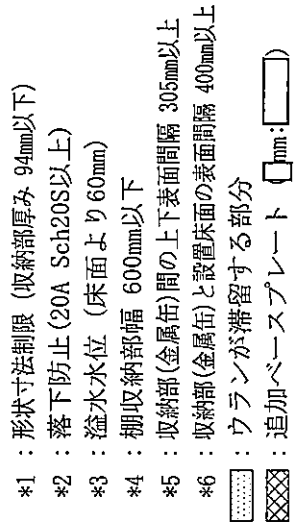 *1 : 形状寸法制限 (収納部厚み 94mm以下)
*2 : 落下防止(20A Sch20S以上)
*3 : 溢水水位 (床面より60mm)
*4 : 棚収納部幅 600mm以下
*5 : 収納部(金属缶)間の上下表面間隔 305mm以上
*6 : 収納部(金属缶)と設置床面の表面間隔 400mm以上
: ウランが滞留する部分
: 追加ベースプレート mm: